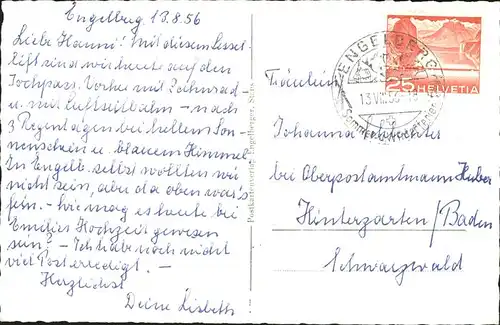 Engelberg 13.8.56
Liebe Hanni! Mit diesem Sessel-
lift sind wir heute auf den
Jochpass. Vorher mit Zahnrad-
u. mit Luftseilbahn – nach
3 Regentagen bei hellem Son-
nenschein u. blauem Himmel
In Engelb. selbst wollten wir
nicht sein, aber da oben war's
fein. – Wie mag es heute bei
Emilies Hochzeit gewesen
sein? – Ich habe noch nicht
viel Post erledigt. –
Herzlichst
Deine Lisbeth
ENGELBERG
13.VIII.56
HELVETIA
25
Fräulein
Johanna
bei Oberpostamtmann Huber
Hinterzarten/Baden
Schwarzwald